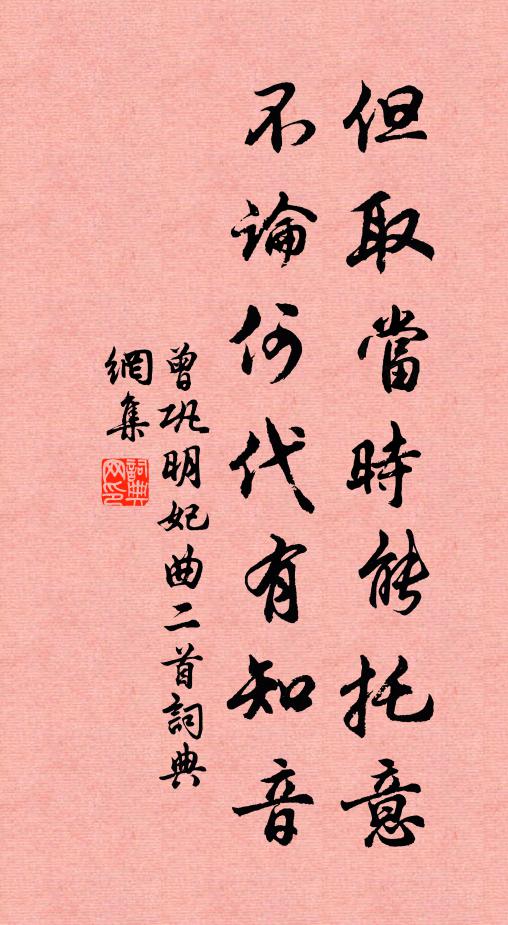 但取當時能托意
不論何代有知音
曾巩明妃曲二首詞典
網集
詞典网印